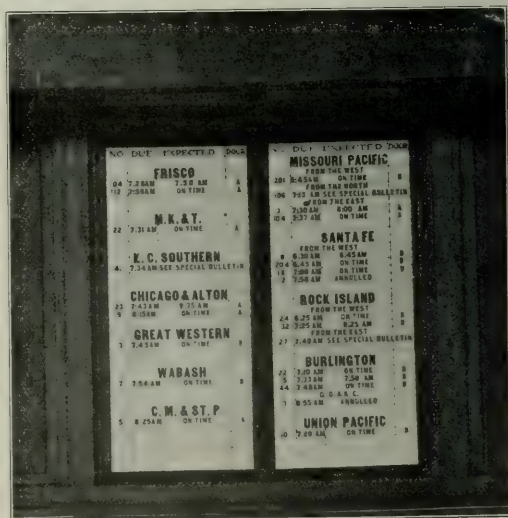 NO. DUE EXPECTED DOOR
FRISCO
04 7.28AM 7.50 AM A
112 7:30AM ON TIME A
M.K.&T.
22 7.31AM ON TIME A
K.C. SOUTHERN
4 7.34AM SEE SPECIAL BULLETIN
CHICAGO & ALTON
23 7:43AM 9.75 AM A
9 8:15AM ON TIME A
GREAT WESTERN
3 7.45AM ON TIME B
WABASH
7 7:50AM ON TIME B
C.M.& ST.P
5 8:25AM ON TIME A
NO. DUE EXPECTED DOOR
MISSOURI PACIFIC
FROM THE WEST
201 6:45AM ON TIME B
FROM THE NORTH
106 7:15 AM SEE SPECIAL BULLETIN
FROM THE EAST
3 7:30AM 8:00 AM A
104 7:37AM ON TIME A
SANTA FE
FROM THE WEST
8 6.30AM 6:45AM B
204 6.45AM ON TIME B
18 7:00AM ON TIME B
2 7:50AM ANNULLED
ROCK ISLAND
FROM THE WEST
24 6.25AM ON TIME B
32 7:25AM 8.25 AM B
FROM THE EAST
27 7.40AM SEE SPECIAL BULLETIN
BURLINGTON
22 7:20AM ON TIME B
5 7.37AM 7.50 AM B
44 7:48AM ON TIME B
7 8:55AM ANNULLED
UNION PACIFIC
10 7:20AM ON TIME B